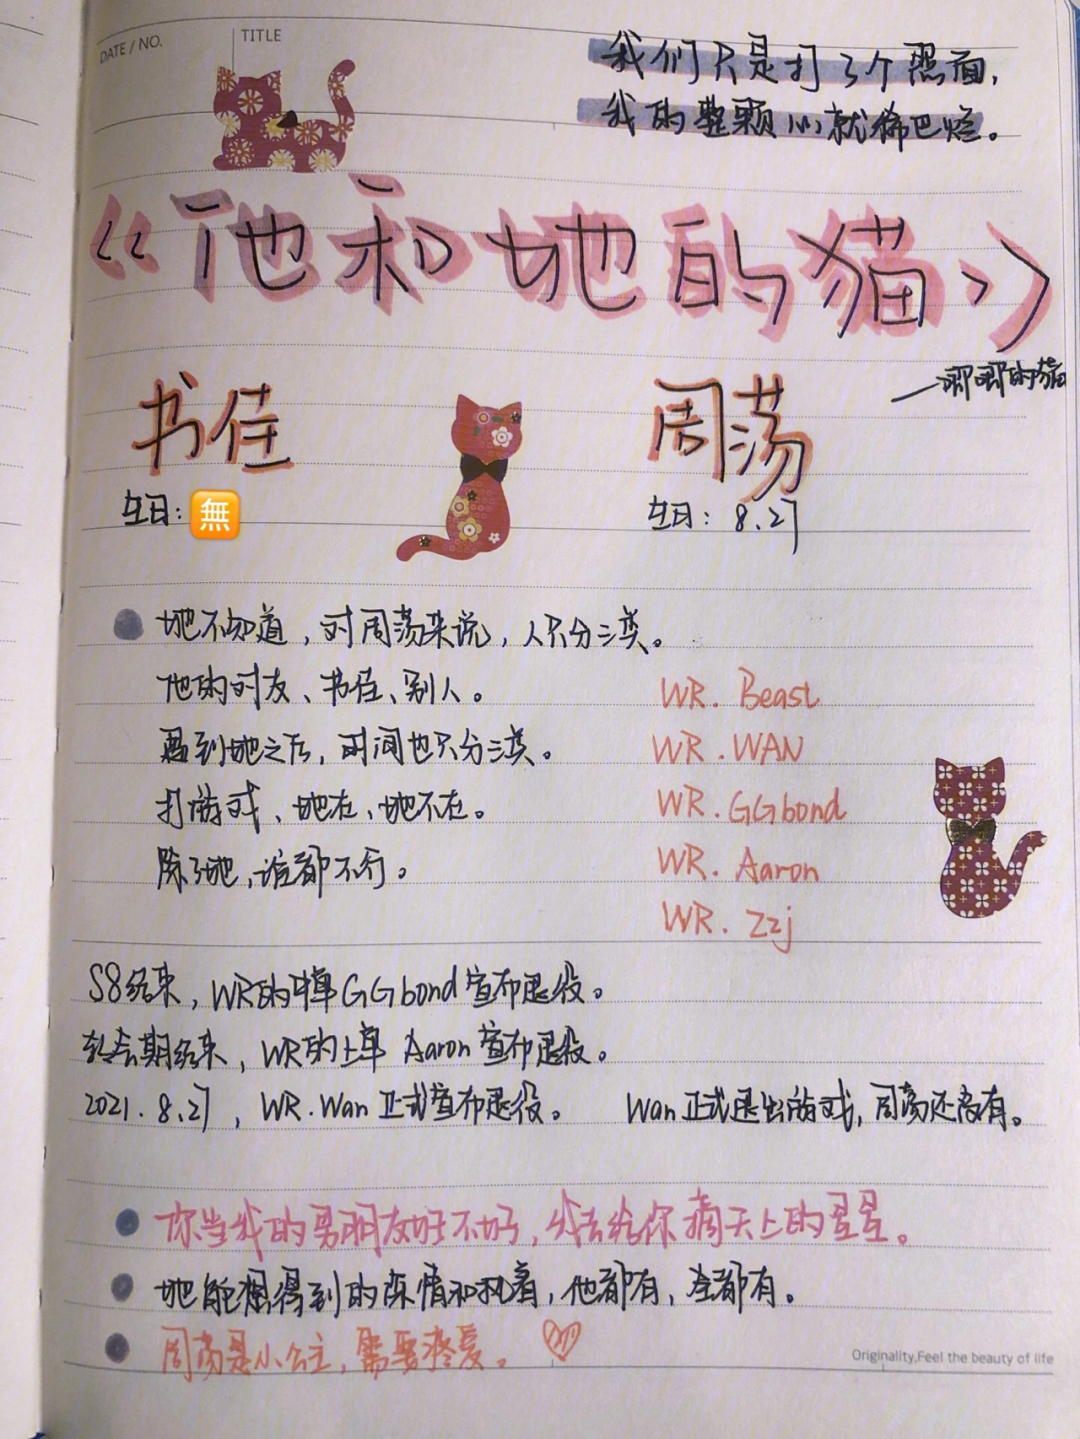 DATE / NO.
TITLE
我们只是打了个照面,
我的整颗心就稀巴烂。
《他和她的猫》
—唧唧的猫
书佳
周荡
生日: 無
生日: 8.27
她不知道, 对周荡来说, 人只分三类。
他的队友、书佳、别人。
WR. Beast
遇到她之后, 时间也只分三类。
WR. WAN
打游戏、她在、她不在。
WR. GGbond
除了她, 谁都不行。
WR. Aaron
WR. Zzj
S8结束, WR的中单GGbond宣布退役。
转会期结束, WR的上单 Aaron宣布退役。
2021. 8.27, WR. Wan正式宣布退役。 Wan正式退出游戏, 周荡还没有。
你当我的男朋友好不好, 我去给你摘天上的星星。
她能想得到的深情和执着, 他都有, 全都有。
周荡是小公主, 需要疼爱。
Originality,Feel the beauty of life